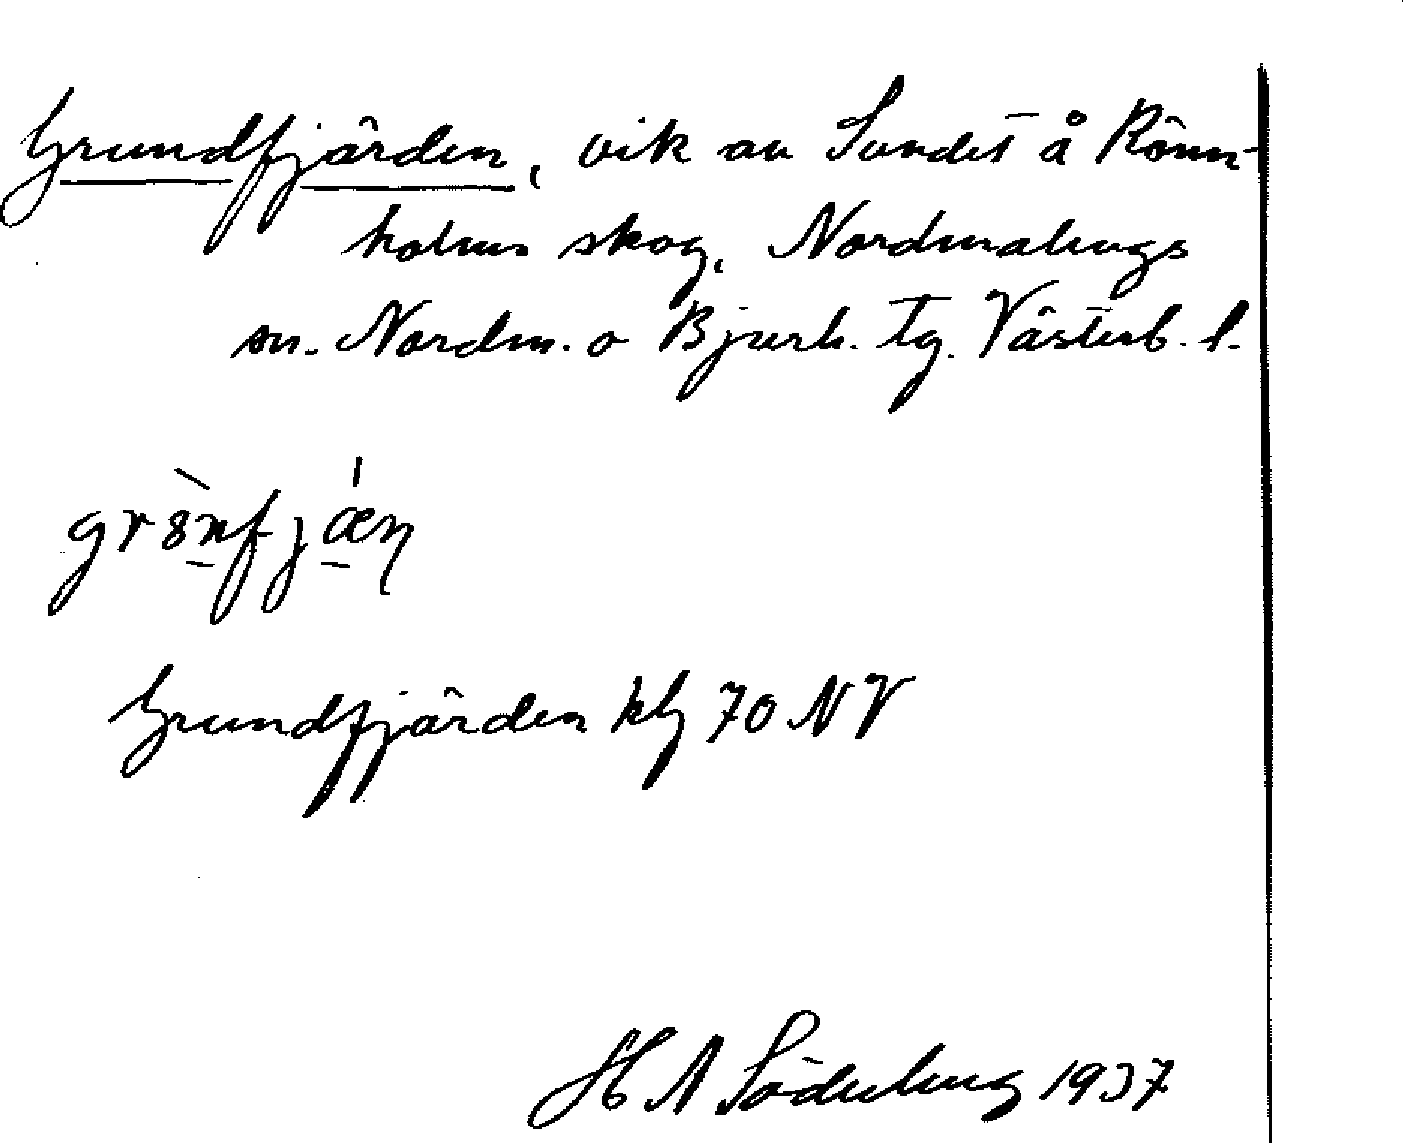 Grundfjärden, vik av Sundet å Rönn-
holms skog, Nordmalings
sn. Nordm. o Bjurh. tg. Västerb. l.
grȣ̀nfjǽṇ
Grundfjärden kbl 70 NV
H A Söderberg 1937